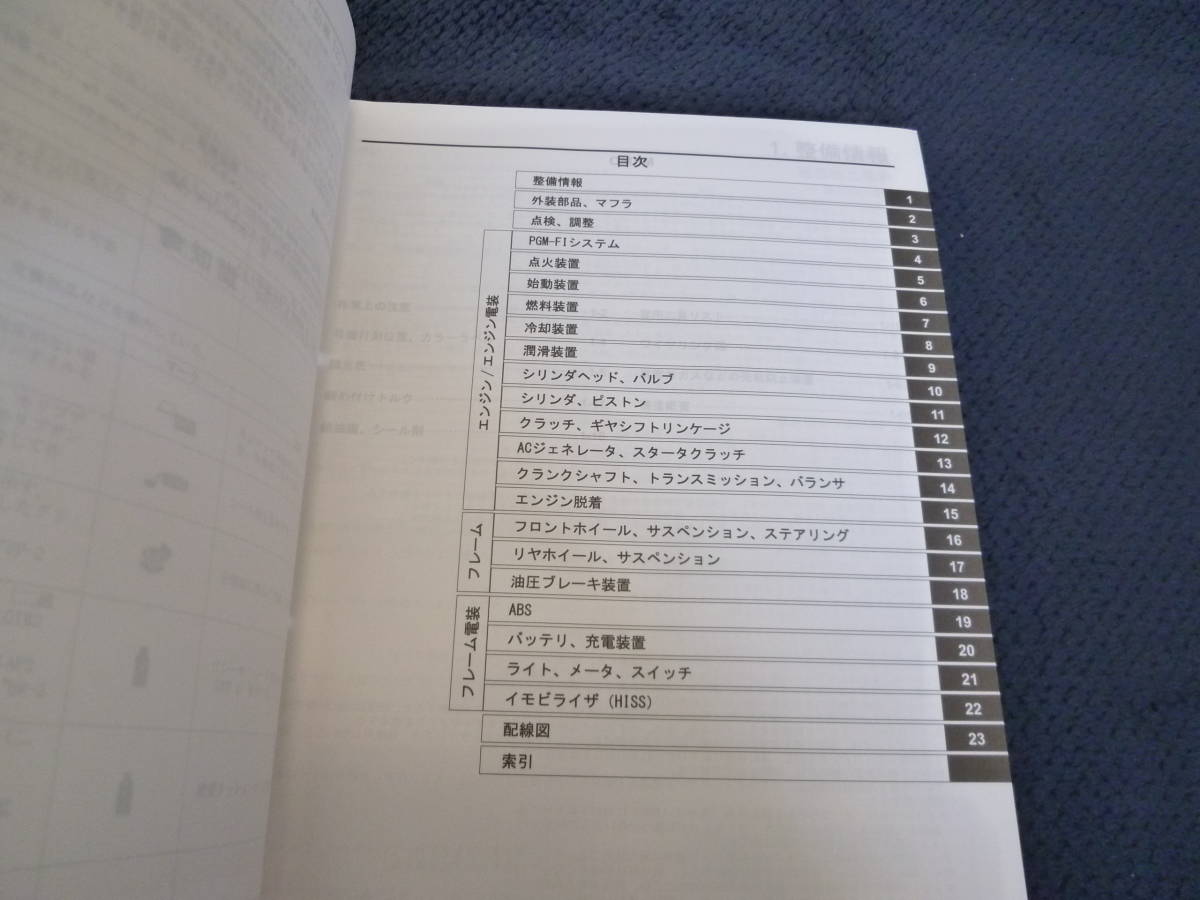 1. 整備情報
目次
整備情報 1
外装部品、マフラ 2
点検、調整 3
エンジン/エンジン電装
PGM-FIシステム 4
点火装置 5
始動装置 6
燃料装置 7
冷却装置 8
潤滑装置 9
シリンダヘッド、バルブ 10
シリンダ、ピストン 11
クラッチ、ギヤシフトリンケージ 12
ACジェネレータ、スタータクラッチ 13
クランクシャフト、トランスミッション、バランサ 14
エンジン脱着 15
フレーム
フロントホイール、サスペンション、ステアリング 16
リヤホイール、サスペンション 17
油圧ブレーキ装置 18
フレーム電装
ABS 19
バッテリ、充電装置 20
ライト、メータ、スイッチ 21
イモビライザ (HISS) 22
配線図 23
索引